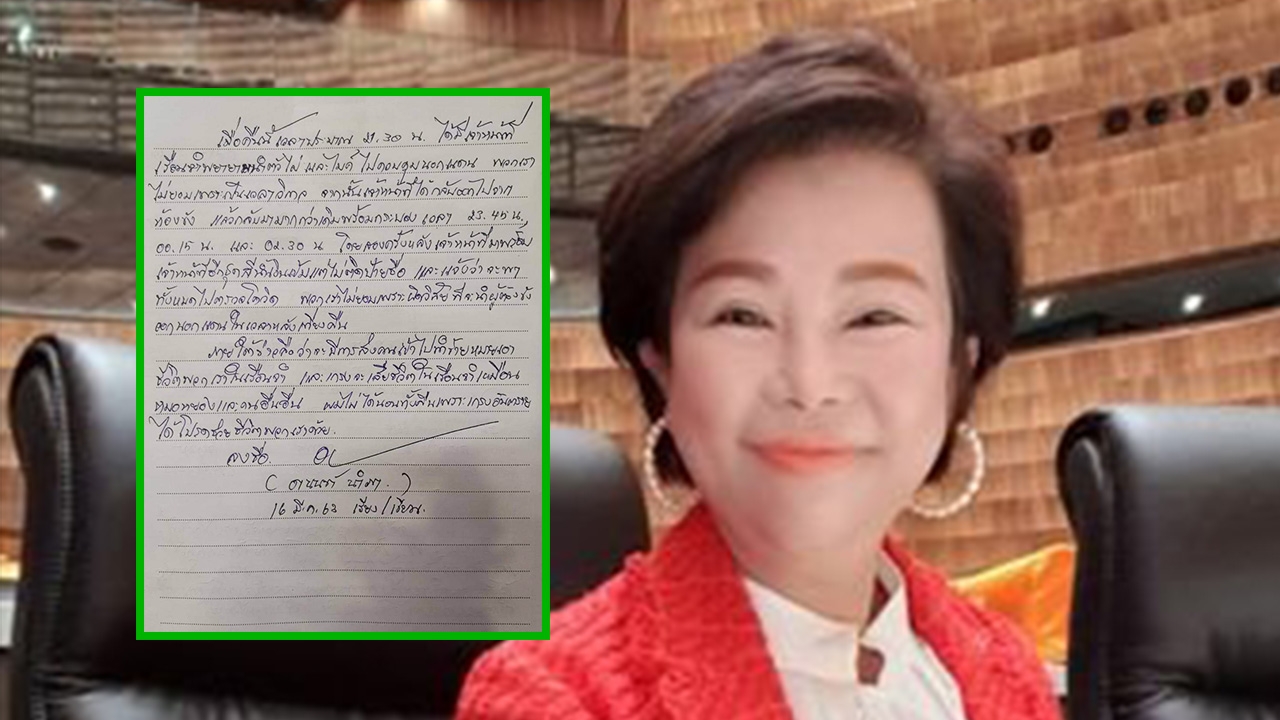 เมื่อคืนนี้เวลาประมาณ 21.30 น. ได้มีเจ้าหน้าที่
เรือนจำพยายามนำตัวไผ่ และไมค์ ไปควบคุมนอกแดน พวกเรา
ไม่ยอมเพราะเป็นเวลาวิกาล จากนั้นเจ้าหน้าที่ได้กลับออกไปจาก
ห้องขัง แล้วกลับมามากกว่าเดิมพร้อมกระบอง เวลา 23.45 น,
00.15 น. และ 02.30 น. โดยสองครั้งหลังเจ้าหน้าที่มาพร้อม
เจ้าหน้าที่อีกชุดสีน้ำเงินเข้มแต่ไม่ติดป้ายชื่อ และแจ้งว่าจะพา
ทั้งหมดไปตรวจโควิด พวกเราไม่ยอมเพราะผิดวิสัยที่จะนำผู้ต้องขัง
ออกนอกแดนในเวลาหลังเที่ยงคืน
ภายใต้ข่าวลือว่าจะมีการส่งคนเข้าไปทำร้ายหมายเอา
ชีวิตพวกเราในเรือนจำ และเกรงจะเสียชีวิตในเรือนจำเหมือน
หมอหยองและคนอื่นอื่น ผมไม่ได้นอนทั้งคืนเพราะเกรงอันตราย
ได้โปรดช่วยชีวิตพวกเราด้วย.
ลงชื่อ
( อานนท์ นำภา )
16 มี.ค.